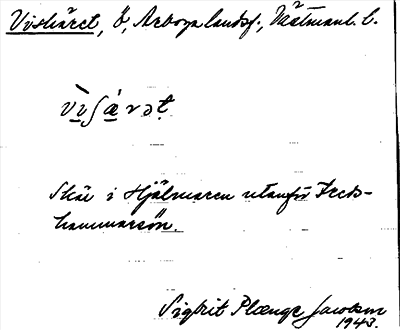 Viskäret, ö, Arboga landsf., Västmanl. l.
vìʃǽrət
Skär i Hjälmaren utanför Freds-
hammarsön.
Sigbrit Plænge Jacobson
1943.